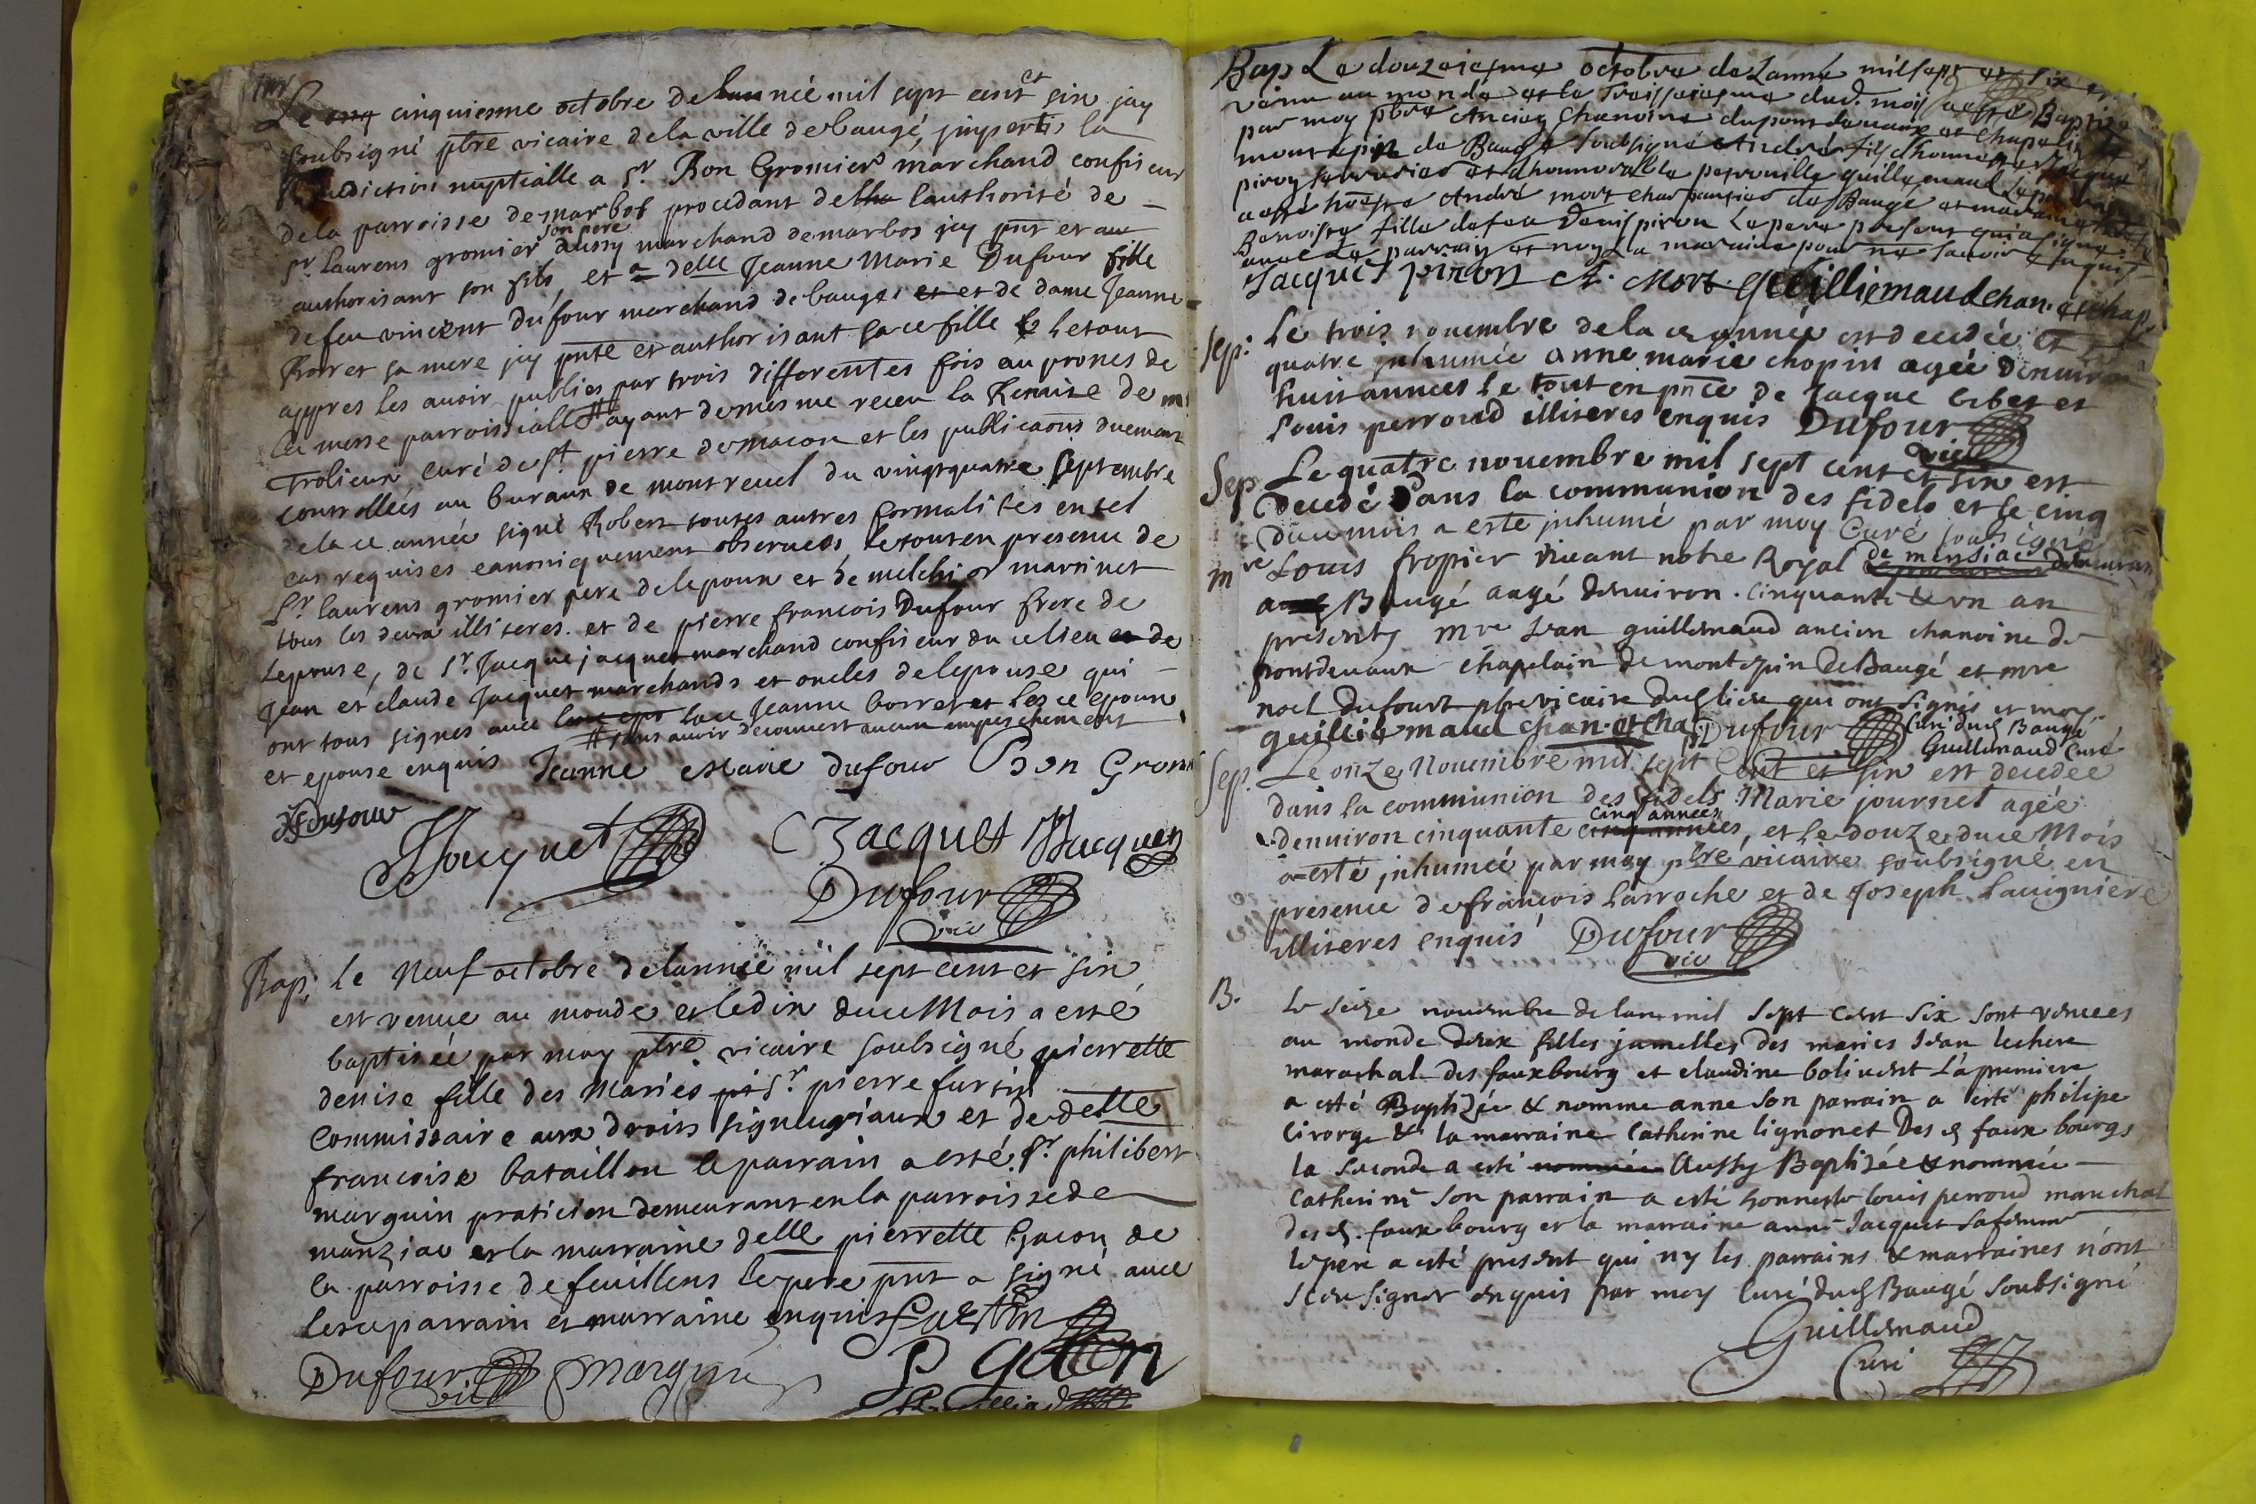 Le cinquiesme octobre de lannée mil sept cent et six jay
soubsigné ptre vicaire de la ville de baugé, jmpertis la
benediction nuptialle a sr Bon Gromier marchand confiseur
de la parroisse de marbos procedant de lauthorité de
sr laurens gromier son pere aussy marchand de marbos jcy pnt et
authorisant son fils, et a delle Jeanne Marie Dufour fille
de feu vincent dufour marchand de baugé et de dame Jeanne
Borret sa mere jcy pnte et authorisant sa ce fille le tout
appres les avoir publiés par trois differentes fois au prones de
la messe parroissialle # ayant de mesme receu la Remise de mr
Trolieur curé de st pierre de macon et les publicaons duement
controllées au bureaux de montrevel du vingt quatre septembre
de la ce année signé Robert toutes autres formalités en tel
cas requises canoniquement observées, le tout en presence de
sr laurens gromier pere de lepoux et de melchior martinet
tous les deux illiteres et de pierre francois Dufour frere de
lepouse, de sr Jacque jacquet marchand confiseur du ce lieu de
Jean et claude Jacquet marchands et oncles de lepouse qui
ont tous signes avec lace Jeanne borret et les ce epoux
# sans avoir decouvert aucun empeschement
et epouse enquis Jeanne Marie dufour Bon Grom
Dufour
Jacquet C Jacquet Jacquet
Dufour
vic
Bap: le Neuf octobre de lannée mil sept cent et six
est venue au monde et le dix du ce Mois a esté
baptisée par moy ptre vicaire soubsigné pierrette
denise fille des Mariés sr pierre furtin
Commissaire aux droits signeuriaux et de delle
francoise bataillon le parrain a esté sr philibert
marguin praticien demeurant en la parroisse de
manziac et la marraine delle pierrette Gacon de
la parroisse de feuillens le pere pnt a signé avec
les ce parrain et marraine enquis furtin
Dufour vic Marguin P Gacon
Bap Le douzeiesme octobre de Lannée mil sept et six est
venu au monde et le Treisseiesme dud. mois a esté Baptisé
par moy pbre Ancien Chanoine du pont de vaux et Chapelin de
montepin de Baugé soubsigné André fils dhonneste Jacque
piron serrurier et dhonnorable petronille guillemaud Le parrain
a esté hoeste André mort charpantier de Baugé et marraine
Benoiste fille de feu Denis piron Le pere present qui a signé
avec Le parrain et non La maraine pour ne savoir enquis
Jacques piron A. Mort Guilliemaud chan. et chap.
Sep: Le trois novembre de la ce année est decedée et le
quatre jnhumée anne marie chopin agée denviron
huit années le tout en pnce de Jacque bibet et
Louis perroud illiteres enquis Dufour
vic
Sep Le quatre novembre mil sept cent et six est
decedé Dans la communion des fidels et le cinq
du ce mois a este jnhumé par moy Curé soubsigné
mre Louis fropier vivant notre Royal de mensiac demeurant
a Baugé aagé denviron cinquante & un an
presents mre Jean guillemaud ancien chanoine de
pontdevaux chapelain de montepin de Baugé et mre
noel dufourt pbre vicaire dud lieu qui ont signés et moy
guilliemaud chan. et chap Dufour Curé dud Baugé
Guillemaud Curé
Sep. Le onze Novembre mil sept Cent et six est decedée
dans la communion des fidels Marie journet agée
denviron cinquante cinq années, et le douze du ce Mois
a esté jnhumée par moy ptre vicaire soubsigné en
presence de francois Larroche et de Joseph Lavigniere
illiteres enquis Dufour
vic
B. Le seize novembre de lan mil sept cent six sont venuees
au monde deux filles jumelles des mariés Jean lechere
marechal des fauxbourg et claudine bolivent La premiere
a esté Baptizée & nomme anne son parrain a esté philipe
Cirorge & la marraine Catherine lignonet Des d faux bourgs
la seconde a esté aussy Baptizée & nommée
Catherine son parrain a esté honneste louis perroud marechal
des d. faux bourg et la marraine anne Jacquet sa femme
le pere a esté present qui ny les parrains & marraines n'ont
sceu signer enquis par moy Curé dud Baugé soubsigné
Guillemaud
Curé